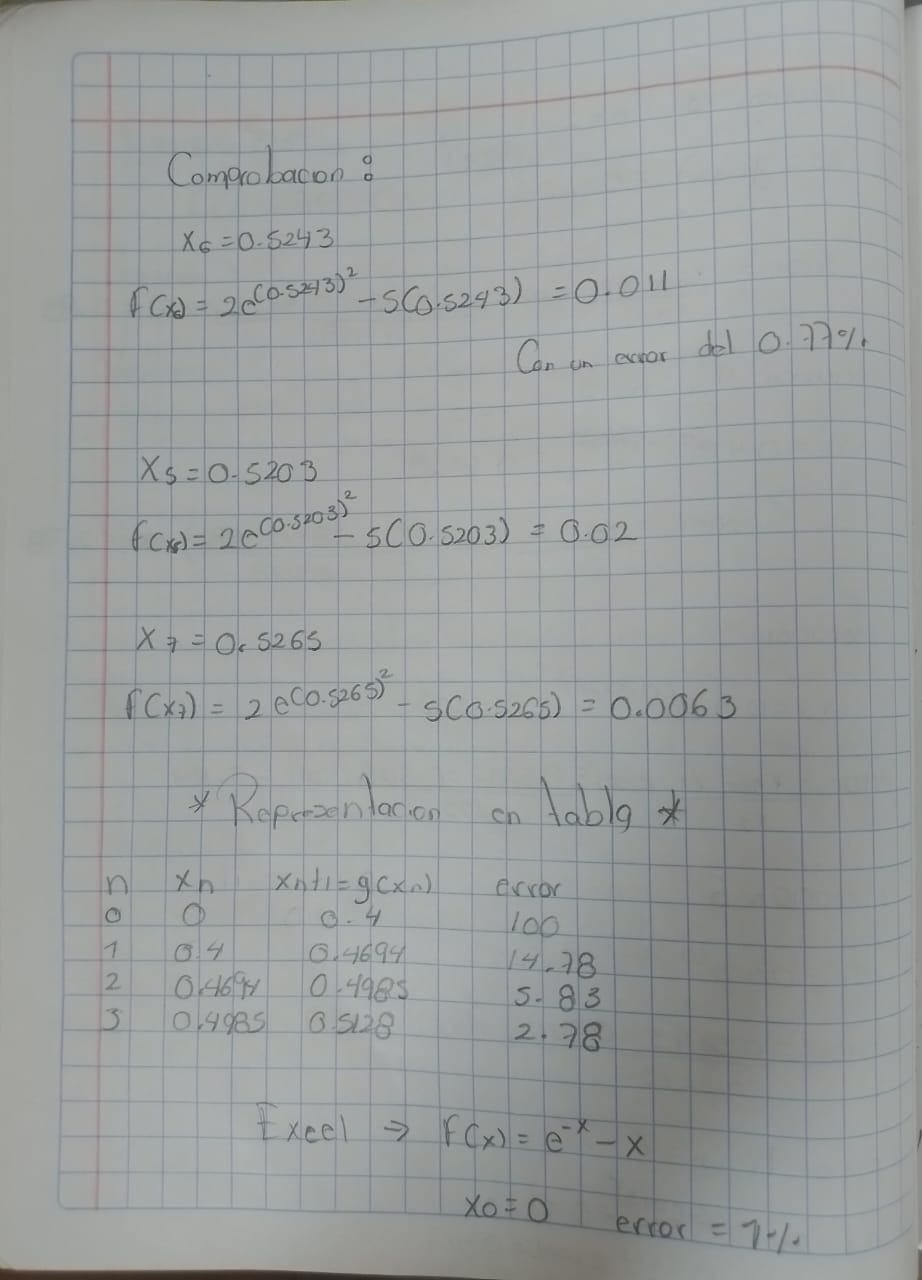 Comprobacion :
x6 = 0.5243
f(x6) = 2e^(0.5243)^2 - 5(0.5243) = 0.011
Con un error del 0.77%
x5 = 0.5203
f(x5) = 2e^(0.5203)^2 - 5(0.5203) = 0.02
x7 = 0.5265
f(x7) = 2e^(0.5265)^2 - 5(0.5265) = 0.0063
* Representacion en tabla *
n xn xn+1=g(xn) error
0 0 0.4 100
1 0.4 0.4694 14.78
2 0.4694 0.4985 5.83
3 0.4985 0.5128 2.78
Excel ⇒ f(x) = e^-x - x
x0 = 0 error = 1%